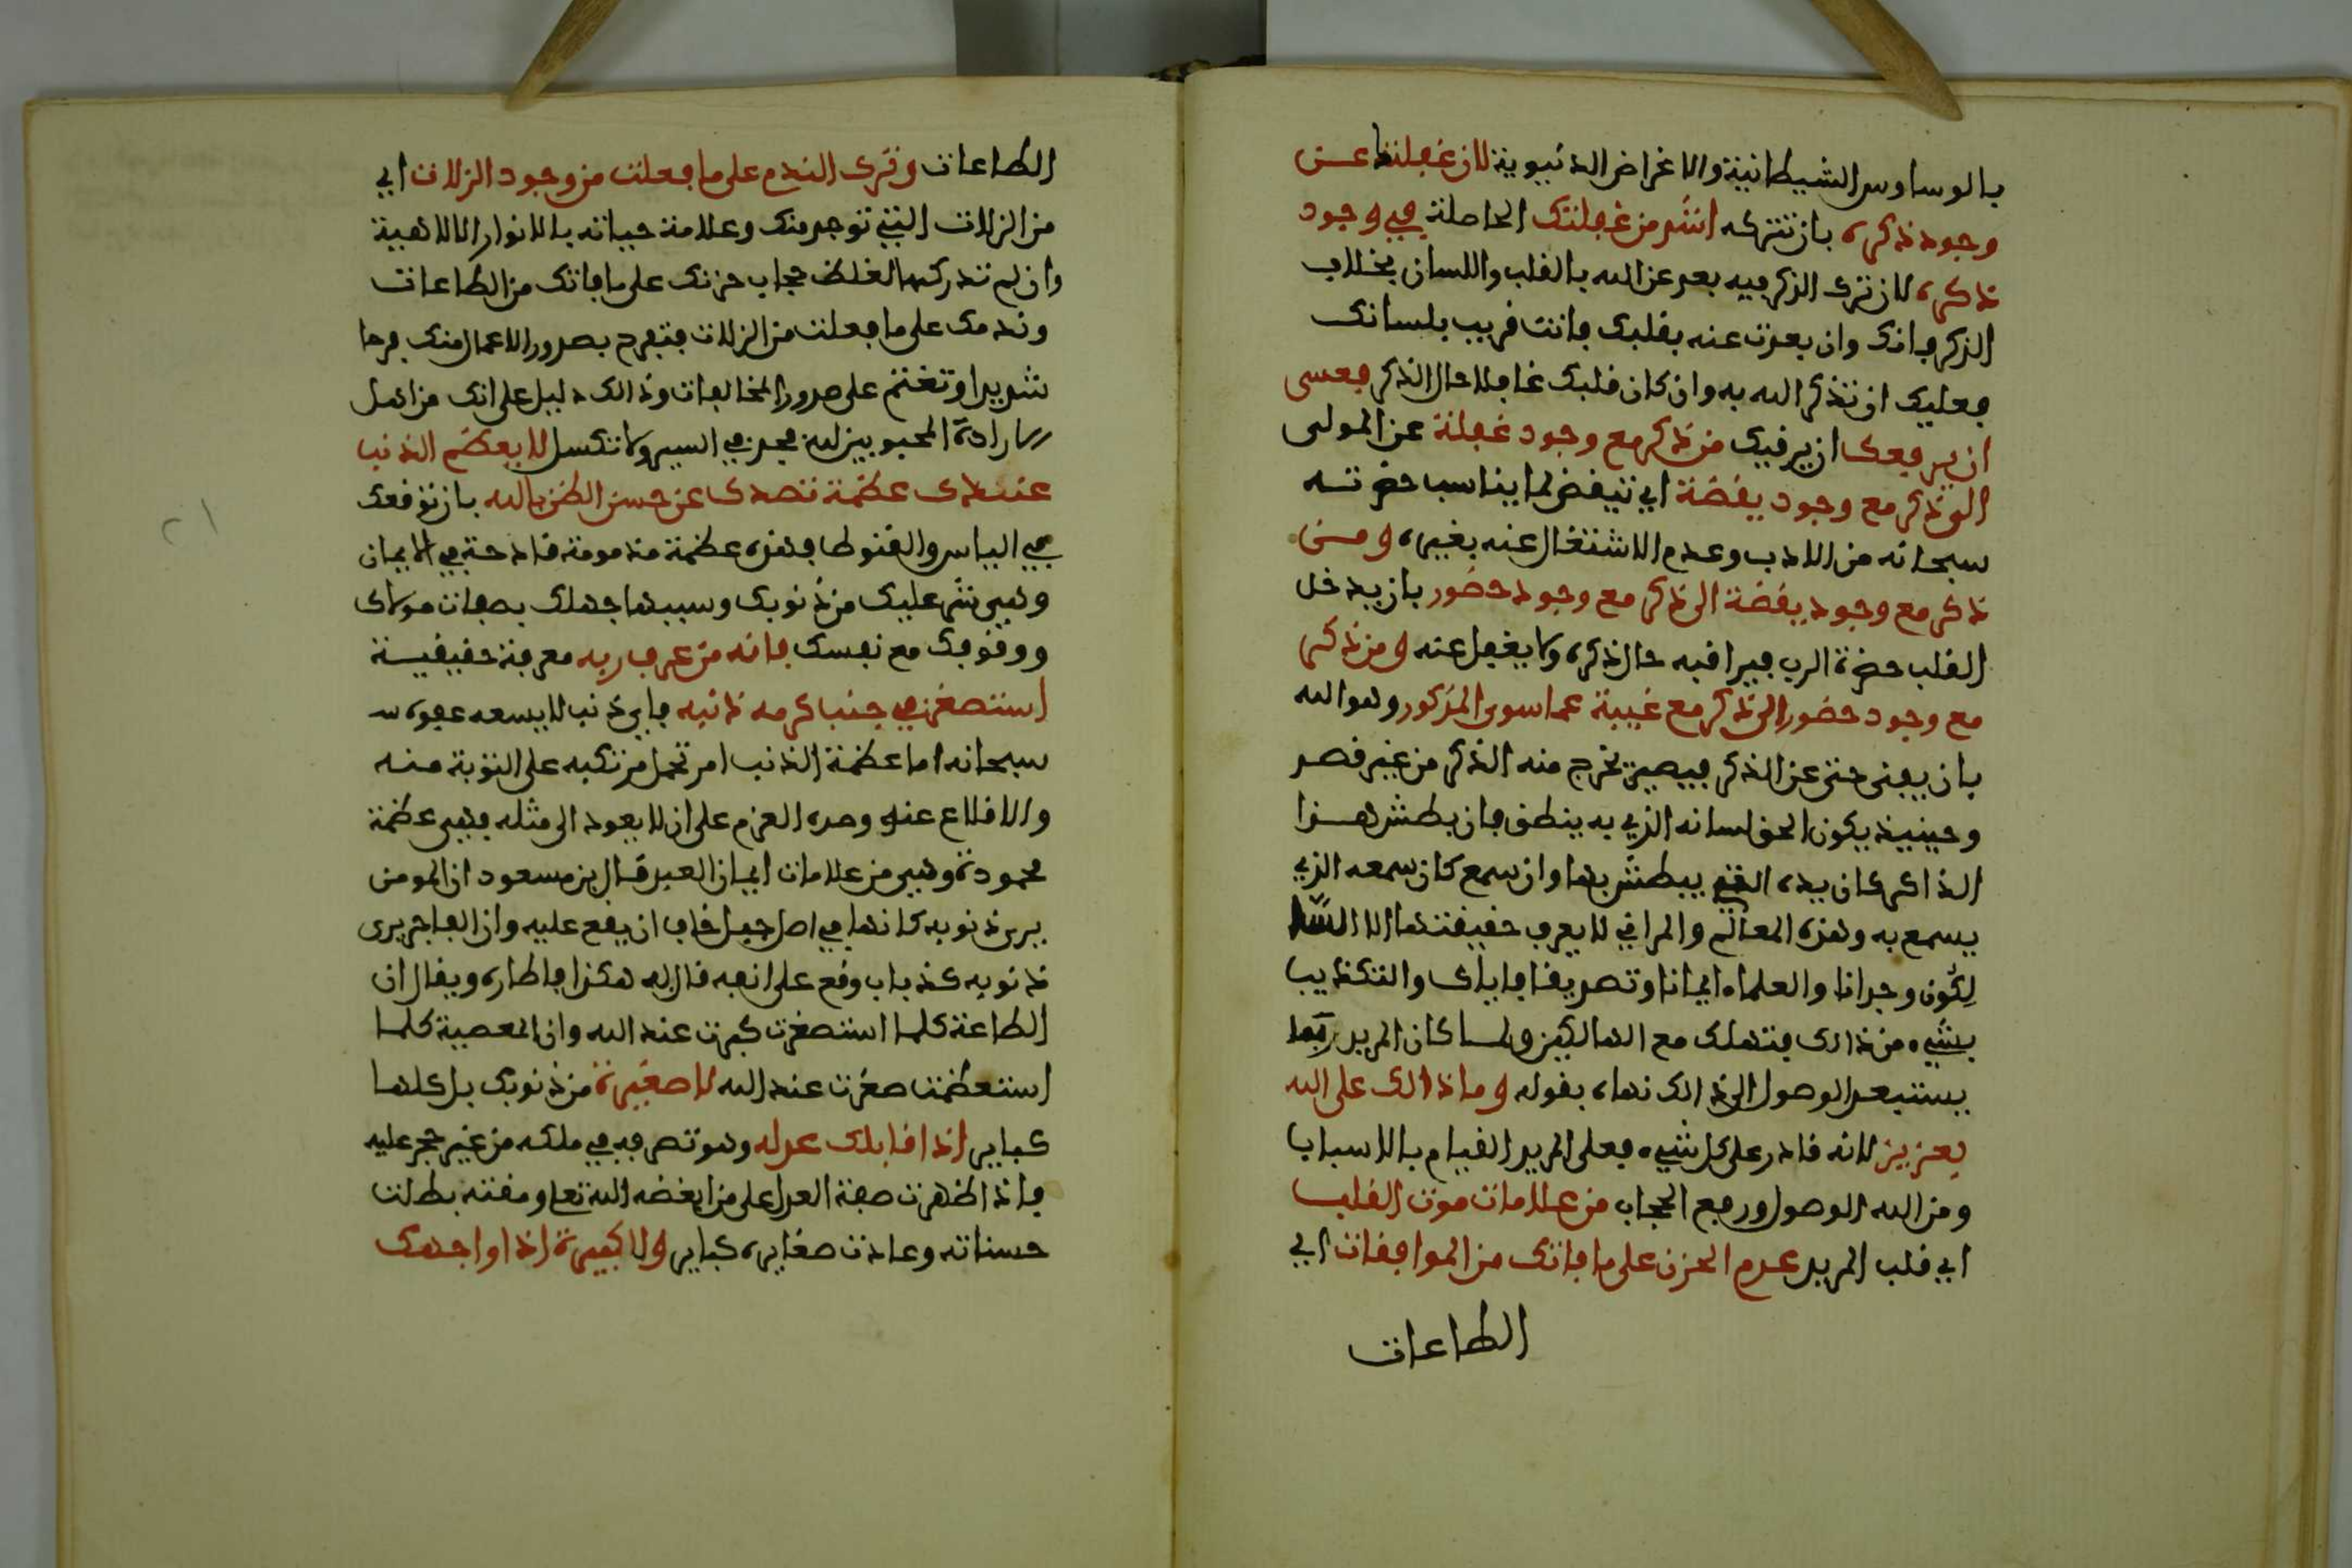 بالوساوس الشيطانية والاغراض الدنيوية لان غفلتك عن
وجود ذكره بان تتركه اشد من غفلتك الحاصلة في وجود
ذكره لان ترك الذكر فيه بعد عن الله بالقلب واللسان بخلاف
الذكر فانك وان بعدت عنه بقلبك فانت قريب بلسانك
فعليك ان تذكر الله به وان كان قلبك غافلا حال الذكر فعسى
ان يرفعك ان يرقيك من ذكر مع وجود غفلة عن المولى
الى ذكر مع وجود يقضة اي تيقض لما يناسب حضرته
سبحانه من الادب وعدم الاشتغال عنه بغيره ومن
ذكر مع وجود يقضة الى ذكر مع وجود حضور بان يدخل
القلب حضرة الرب فيراقبه حال ذكره ولا يغفل عنه ومن ذكر
مع وجود حضور الى ذكر مع غيبة عما سوى المذكور وهو الله
بان يفنى حتى عن الذكر فيصير يخرج منه الذكر من غير قصد
وحينيذ يكون الحق لسانه الذي به ينطق فان بطش هذا
الذاكر كان يده التي يبطش بها وان سمع كان سمعه الذي
يسمع به وهذه المعالم والمراقي لا يعرف حقيقتها الا السا
لكون وجدانا والعلماء ايمانا وتصديقا فاياك والتكذيب
بشيء من ذلك فتهلك مع الهالكين ولما كان المريد ربما
يستبعد الوصول الى ذالك نهاه بقوله وما ذالك على الله
بعزيز لانه قادر على كل شيء فعلى المريد القيام بالاسباب
ومن الله الوصول ورفع الحجاب من علامات موت القلب
اي قلب المريد عدم الحزن على ما فاتك من الموافقات اي
الطاعات
الطاعات وترك الندم على ما فعلت من وجود الزلات اي
من الزلات التي توجد منك وعلامة حياته بالانوار الالاهية
وان لم تدركها لغلظ حجاب حزنك على ما فاتك من الطاعات
وندمك على ما فعلت من الزلات فتفرح بصدور الاعمال منك فرحا
شديدا وتغتنم على صدور المخالفات وذالك دليل على انك من اهل
ارادة المحبوبين لله فجد في السير ولا تكسل لا يعظم الذنب
عندك عظمة تصدك عن حسن الظن بالله بان توقعك
في الياس والقنوط فهذه عظمة مذمومة قادحة في الايمان
وهي شر عليك من ذنوبك وسببها جهلك بصفات مولاك
ووقوفك مع نفسك فانه من عرف ربه معرفة حقيقية
استصغر في جنب كرمه ذنبه فاي ذنب لا يسعه عفوه
سبحانه اما عظمة الذنب امر تحمل مرتكبه على التوبة منه
والاقلاع عنه وصدق العزم على ان لا يعود الى مثله فهي عظمة
محمودة وهي من علامات ايمان العبد قال بن مسعود ان المومن
يرى ذنوبه كانها في اصل جبل خاف ان يقع عليه وان الفاجر يرى
ذنوبه كذباب وقع على انفه قال به هكذا فاطاره ويقال ان
الطاعة كلما استصغرت كبرت عند الله وان المعصية كلما
استعظمت صغرت عند الله لا صغيرة من ذنوبك بل كلها
كباير اذا قابلك عدله وهو تصرفه في ملكه من غير حجر عليه
فاذا ظهرت صفة العدل على من ابغضه الله تعا ومقته بطلت
حسناته وعادت صغايره كباير ولا كبيرة اذا واجهك